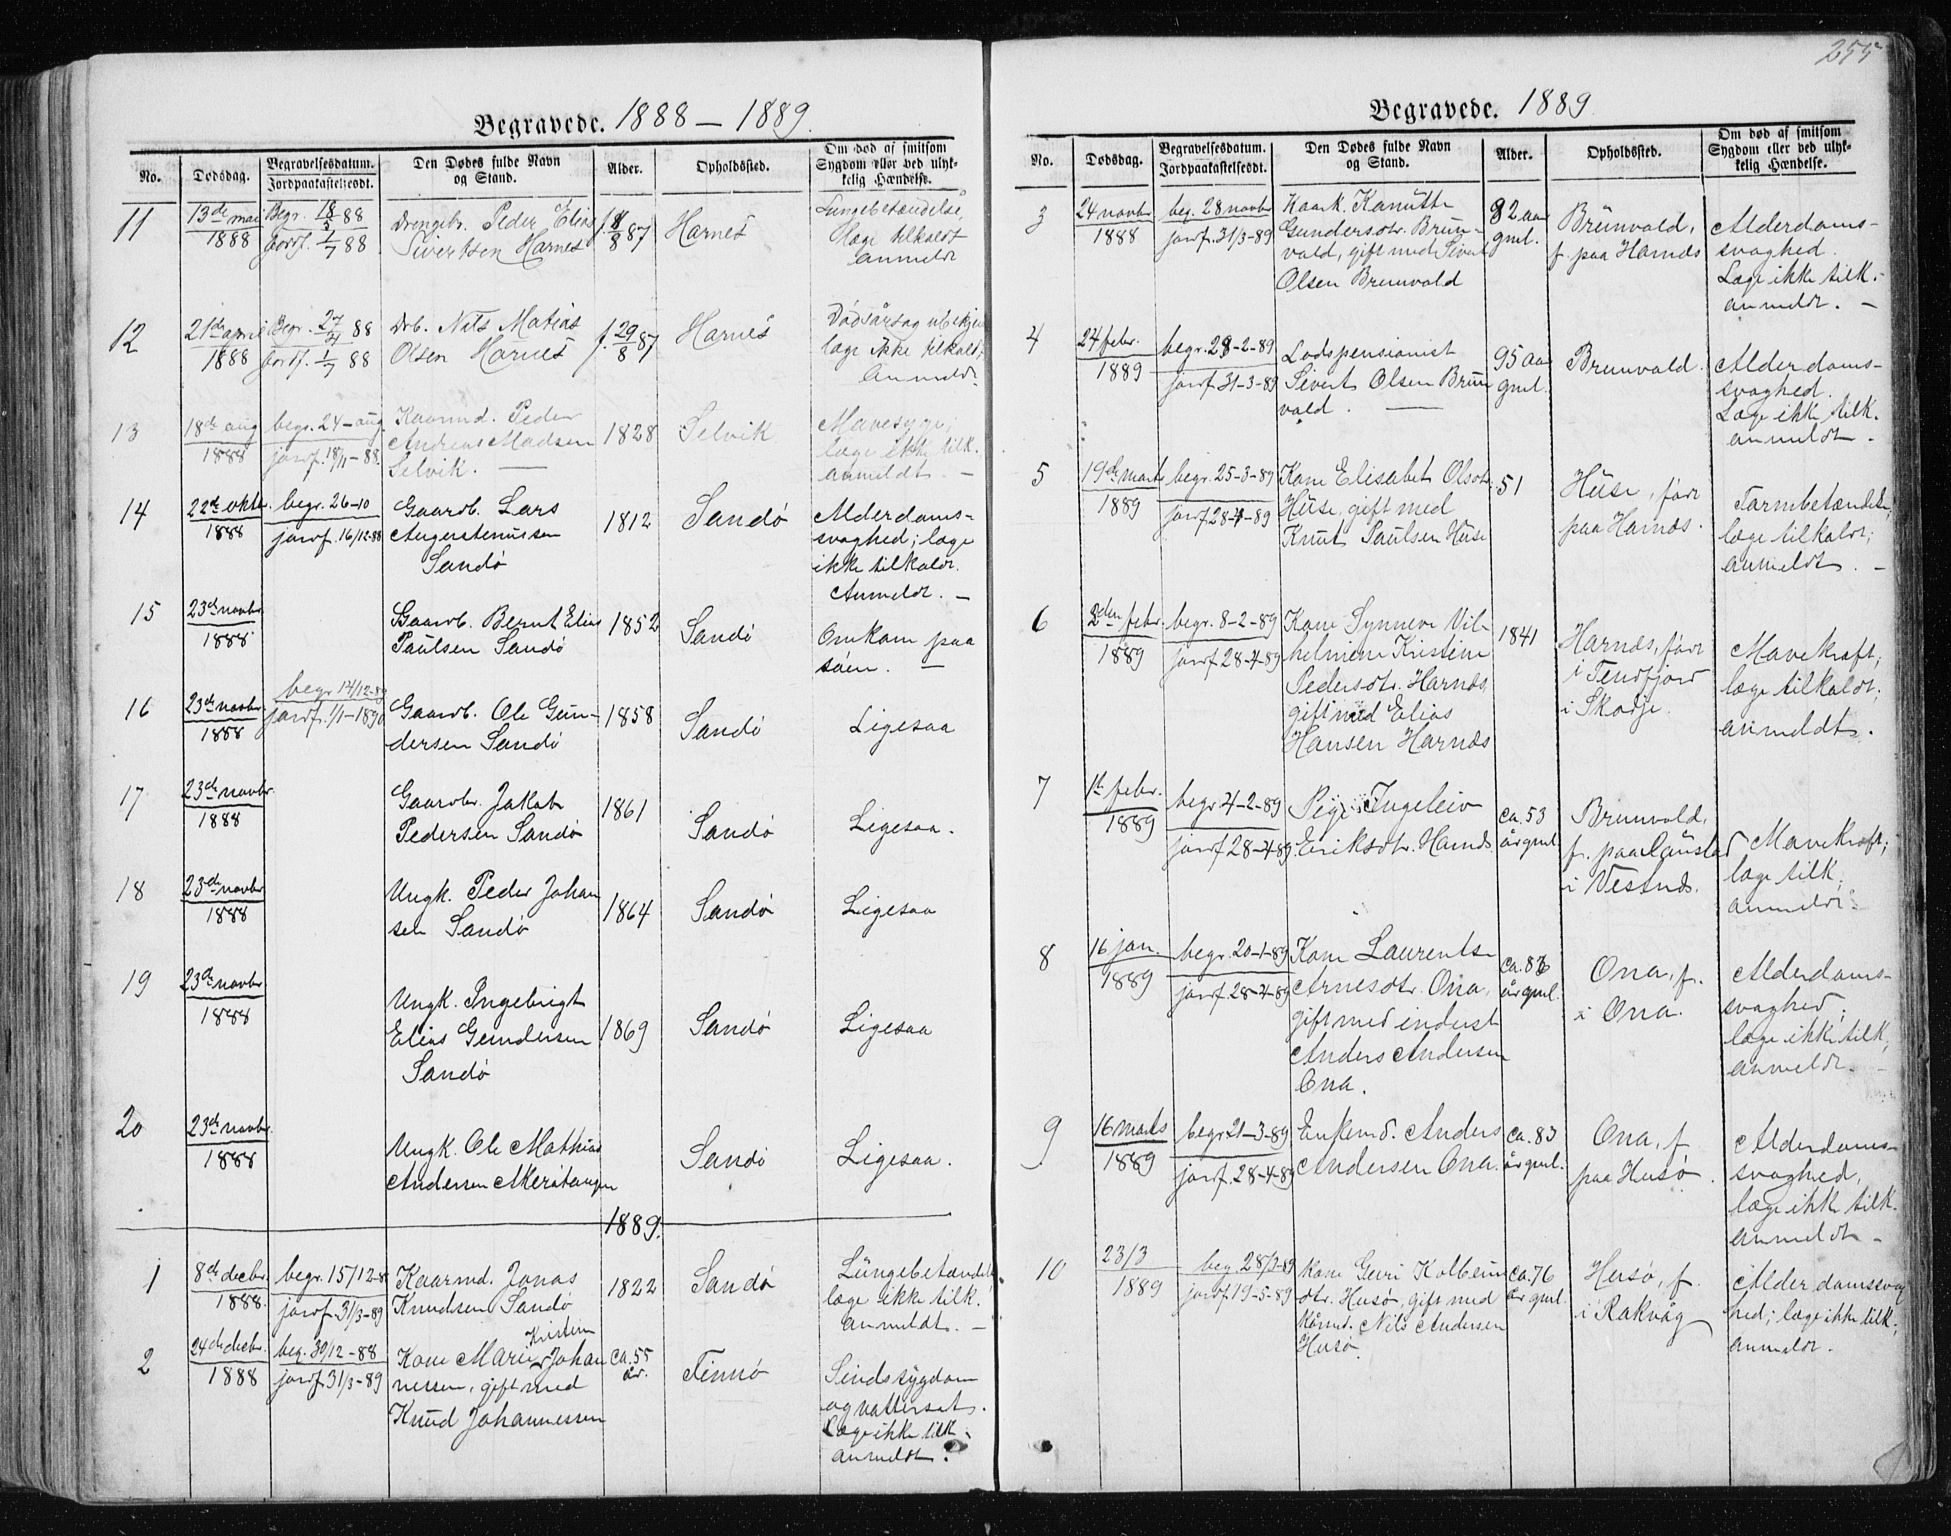 255
Begravede. 1888 – 1889.
No. Dødsdag. Begravelsesdatum. Jordpaakastelsesdt. Den Dødes fulde Navn og Stand. Alder. Opholdssted. Om død af smitsom Sygdom eller ved ulykkelig Hændelse.
11 13de mai 1888 Begr. 18/5 88 Jordf. 1/7 88 Drengeb. Peder Elias
Sivertsen Harnes f. 87 Harnes Lungebetændelse,
læge tilkaldt
anmeldt
12 21de april 1888 Begr. 27/4 88 Jordf. 1/7 88 Drb. Nils Matias
Olsen Harnes f. 29/8 87 Harnes Dødsårsag ubekjen
læge ikke tilkaldt,
Anmeldt.
13 18de aug 1888 begr. 24–aug jordf. 18/11–88 Kaarmd. Peder
Andreas Madsen
Selvik. — 1828 Selvik Mavesyge,
læge ikke tilk.
anmeldt –
14 22de oktbr. 1888 begr. 26–10 jordf. 16/12–88 Gaardb. Lars
Augustinussen
Sandø 1812 Sandø Alderdoms-
svaghed; læge
ikke tilkaldt.
Anmeldt. –
15 23de novbr 1888 Gaardb. Bernt Elias
Paulsen Sandø 1852 Sandø Omkom paa
søen. –
16 23de novbr. 1888 begr 14/12–89 jordf. 1/1–1890 Gaardb. Ole Gun-
dersen Sandø 1858 Sandø Ligesaa
17 23de novbr. 1888 Gaardbr. Jakob
Pedersen Sandø 1861 Sandø Ligesaa.
18 23de novbr 1888 Ungk. Peder Johan
sen Sandø 1864 Sandø Ligesaa
19 23de novbr 1888 Ungk. Ingebrigt
Elias Gundersen
Sandø 1869 Sandø Ligesaa
20 23de novbr. 1888 Ungk. Ole Mathias
Andersen Sandø Ligesaa.
1889.
1 8de decbr. 1888. begr. 15/12–88 jordf. 31/3–89 Kaarmd. Jonas
Knudsen Sandø 1822 Sandø Lungebetændelse
læge ikke tilk.
anmeldt. –
2 24de decbr. 1888 beg. 30/12–88 jordf 31/3–89 Kone Marie Kristine Johan
nessen, gift med
Knud Johannessen ca. 55 år. Finnø Sindssygdom
og vattersot.
Læge ikke tilk.
anmeldt.
Begravede. 1889
No. Dødsdag. Begravelsesdatum. Jordpaakastelsesdt. Den Dødes fulde Navn og Stand. Alder. Opholdssted. Om død af smitsom Sygdom eller ved ulykkelig Hændelse.
3 24 novbr 1888 beg. 28 novbr jordf. 31/3–89 Kaark. Kanutte
Gundersdtr. Brun-
vold, gift med Sivert
Olsen Brunvold 82 aar gml. Brunvold,
f. paa Harnæs Alderdoms-
svaghed.
Læge ikke tilk.–
anmeldt. –
4 24 febr. 1889 begr. 28–2–89 jordf. 31–3–89 Lodspensionist
Sivert Olsen Brun
vold. — 95 aar gml. Brunvold. Alderdoms-
svaghed.
Læge ikke tilk.
anmeldt. –
5 19de marts 1889 begr. 25–3–89 jordf 28–4–89 Kone Elisabet Olsdtr.
Huse, gift med
Knut Paulsen Huse 51 Huse, født
paa Harnæs. Tarmbetændelse,
læge tilkaldt;
anmeldt. –
6 2den febr. 1889 begr. 8–2–89 jordf 28–4–89 Kone Synneve Vil-
helmine Kristine
Pedersdtr. Harnæs
gift med Elias
Hansen Harnæs 1841 Harnæs, født
i Tenfjord
i Skodje. Mavekræft;
læge tilkaldt;
anmeldt.
7 1ste febr. 1889 begr. 4–2–89 jordf 28–4–89 Pige Ingeleiv
Eriksdtr. Harnæs. ca. 53 år gml. Brunvold,
f. paa
i Vestnæs. Mavekræft;
læge tilk;
anmeldt.
8 16 jan. 1889 begr. 20–1–89 jordf. 28–4–89 Kone Laurentse
Arnesdtr. Ona,
gift med inderst
Anders Andersen
Ona. år gml. Ona, f.
i Ona. Alderdoms-
svaghed;
læge ikke tilk,
anmeldt. –
9 16 marts 1889 begr 21–3–89 jordf. 28–4–89 Enkemd. Anders
Andersen Ona. ca. 83 år gml. Ona, f.
paa Husø. Alderdoms-
svaghed,
læge ikke tilk.
anmeldt –
10 23/3 1889 beg 28/3–89 jordf 19–5–89 Kone Guri Kolbein
dtr. Husø, gift med
Kårmd. Nils Andersen
Husø. ca. 76 år gml. Husø, f.
i Rakvåg Alderdomssvag
hed; læge ikke tilk;
anmeldt.